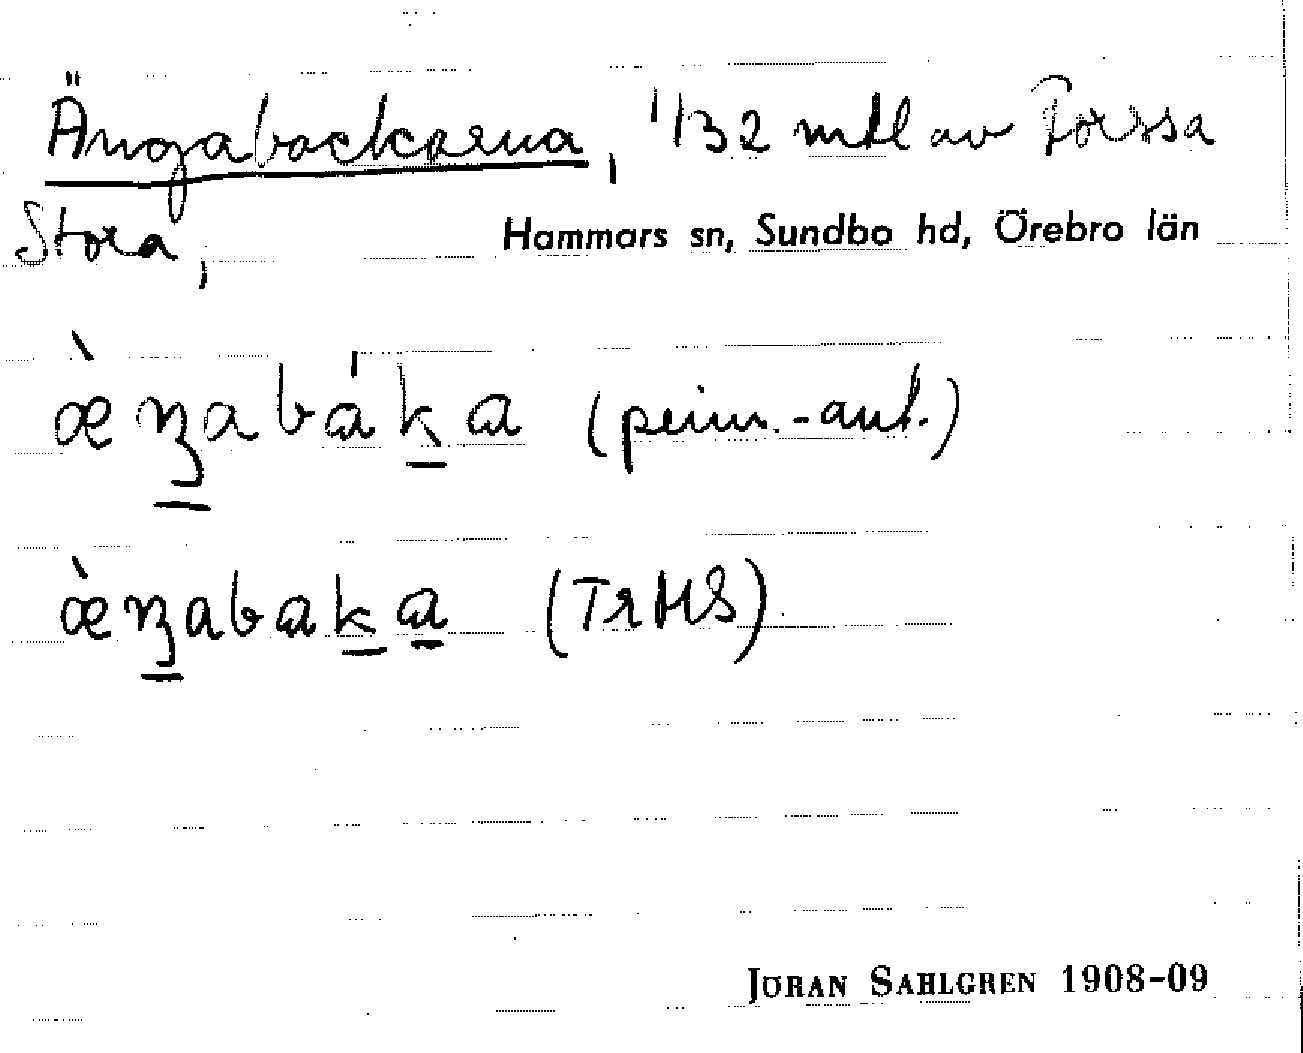 Ängabackarna, 1/32 mtl av Forssa
Stora,
Hammars sn, Sundbo hd, Örebro län
æ̀ŋabáka (prim.-ant.)
æ̀ŋabaka (TrHS)
JÖRAN SAHLGREN 1908-09